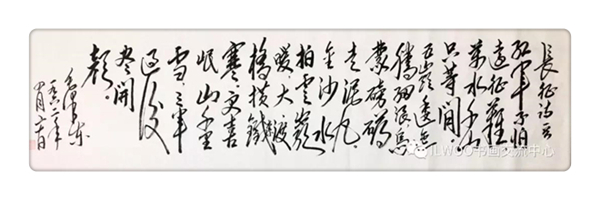 长征诗一首
红军不怕
远征难
万水千山
只等闲
五岭逶迤
腾细浪乌
蒙磅礴
走泥丸
金沙水
拍云崖
暖大渡
桥横铁
索寒更喜
岷山千里
雪三军
过后
尽开
颜
毛泽东
一九六二年
四月廿日
ILWOO书画交流中心